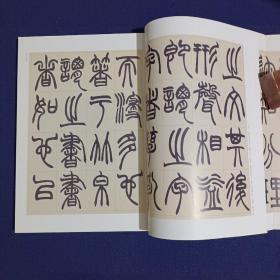 之文其後
形聲相益
即謂之字
字者孳乳
而浸多也
著于竹帛
謂之書書
者如也以